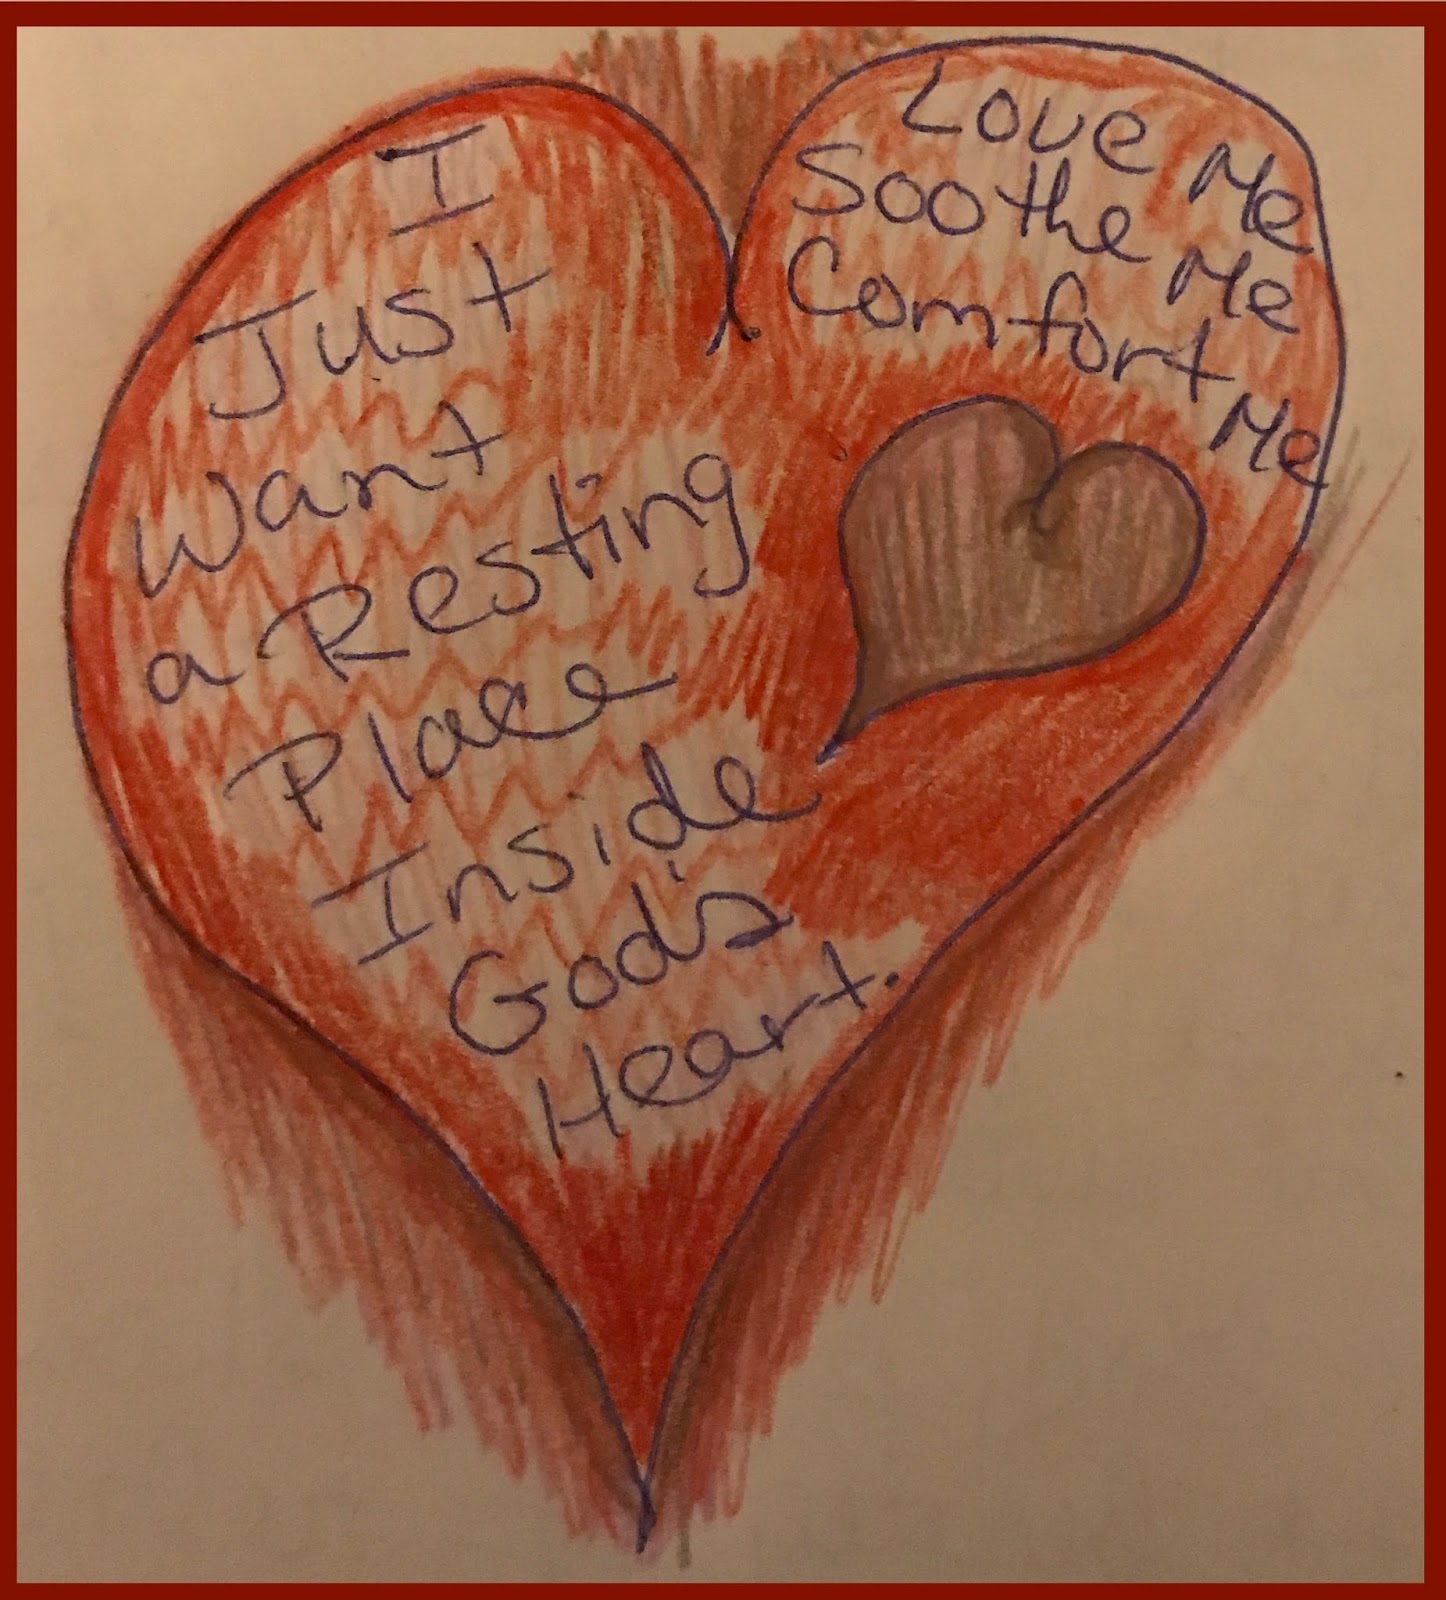 I
Just
Want
a Resting
Place
Inside
God's
Heart.
Love Me
Soothe Me
Comfort Me